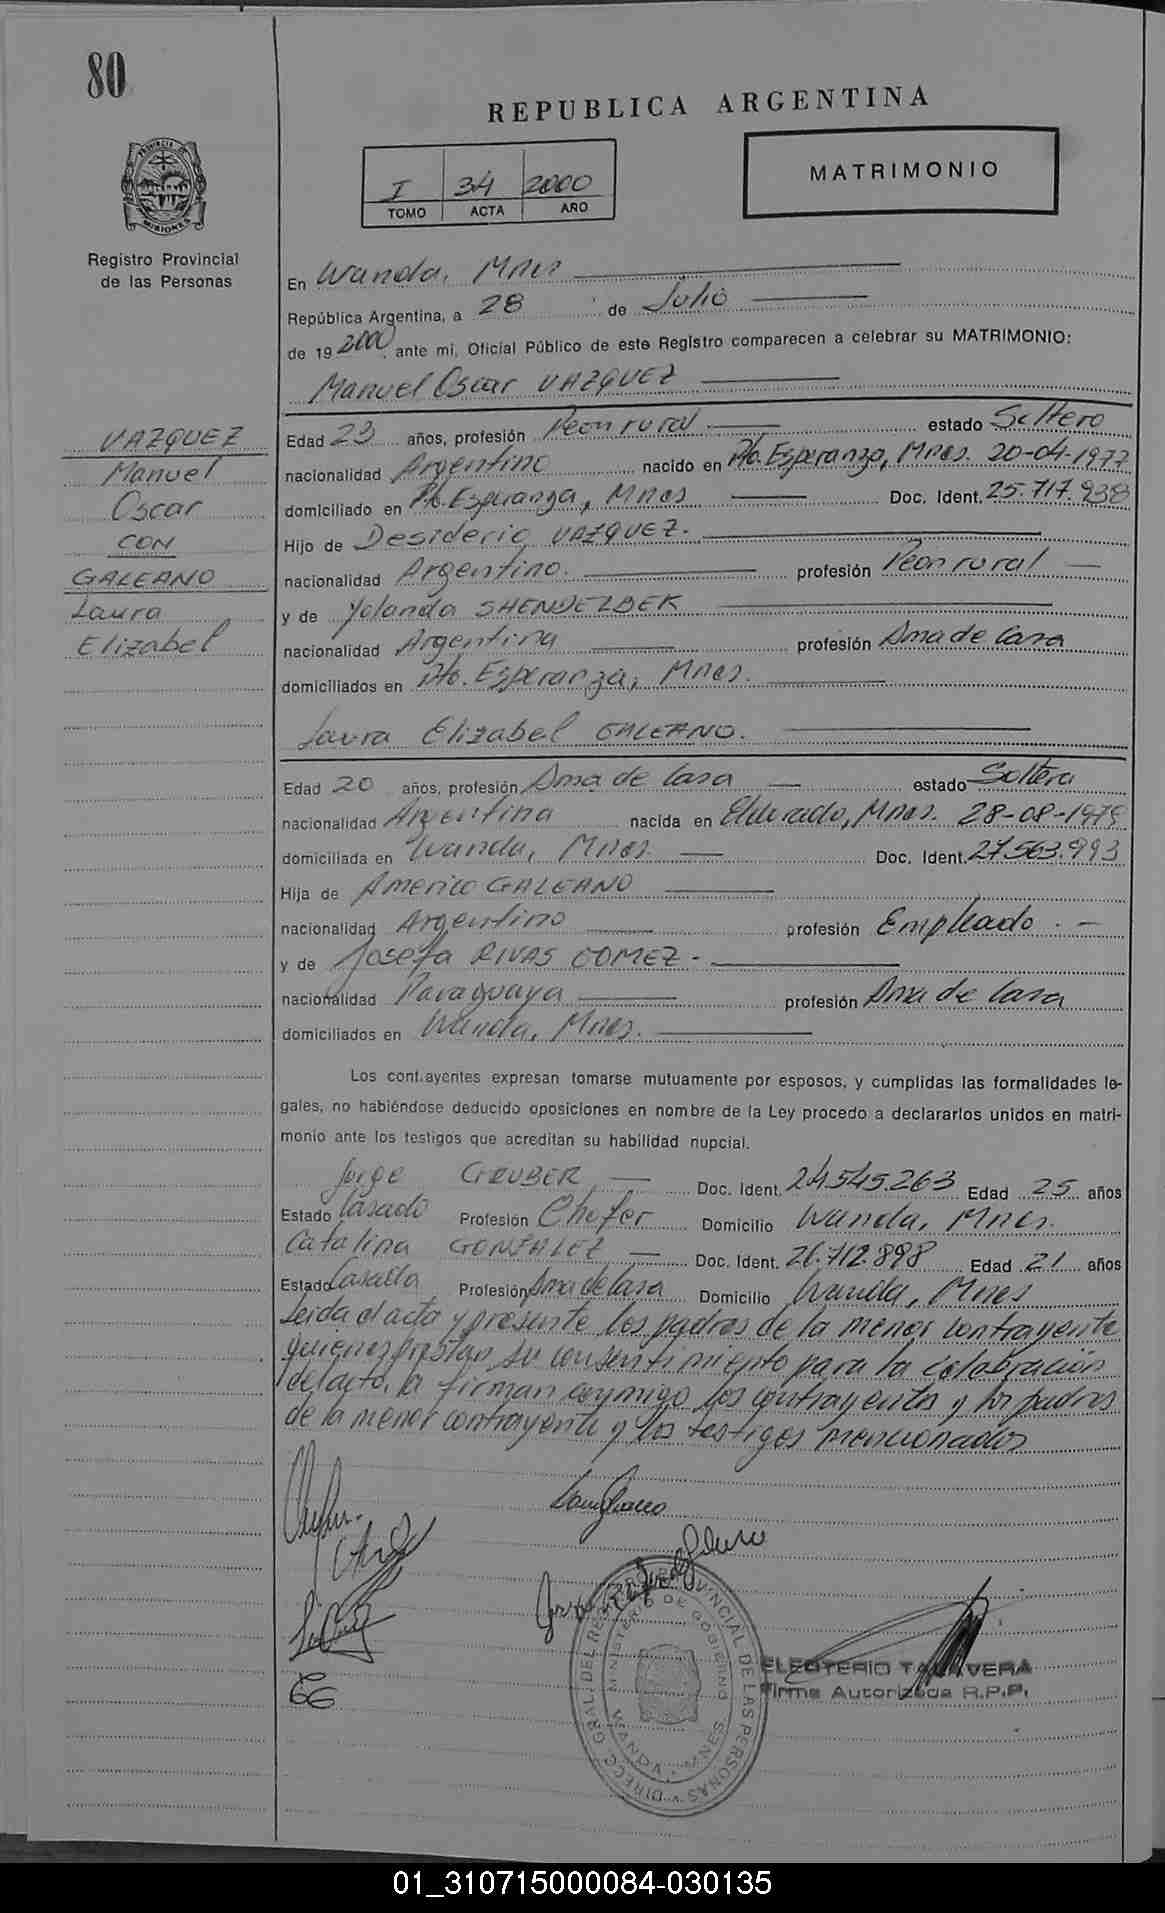 80
REPUBLICA ARGENTINA
PROVINCIA DE MISIONES
Registro Provincial
de las Personas
I 34 2000
TOMO ACTA AÑO
MATRIMONIO
En Wanda, Mnes
República Argentina, a 28 de Julio
de 19 2000, ante mi, Oficial Público de este Registro comparecen a celebrar su MATRIMONIO:
Manuel Oscar VAZQUEZ
VAZQUEZ
Manuel
Oscar
CON
GALEANO
Laura
Elizabel
Edad 23 años, profesión Peon rural estado Soltero
nacionalidad Argentino nacido en Pto. Esperanza, Mnes. 20-04-1977
domiciliado en Pto. Esperanza, Mnes Doc. Ident. 25.717.938
Hijo de Desiderio VAZQUEZ.
nacionalidad Argentino. profesión Peon rural
y de Yolanda SHENDELBEK
nacionalidad Argentina profesión Ama de Casa
domiciliados en Pto. Esperanza, Mnes.
Laura Elizabel GALEANO.
Edad 20 años, profesión Ama de Casa estado Soltera
nacionalidad Argentina nacida en Eldorado, Mnes. 28-08-1979
domiciliada en Wanda, Mnes. Doc. Ident. 27.563.993
Hija de Americo GALEANO
nacionalidad Argentino profesión Empleado.
y de Josefa RIVAS GOMEZ.
nacionalidad Paraguaya profesión Ama de Casa
domiciliados en Wanda, Mnes.
Los cont.ayentes expresan tomarse mutuamente por esposos, y cumplidas las formalidades le-
gales, no habiéndose deducido oposiciones en nombre de la Ley procedo a declararlos unidos en matri-
monio ante los testigos que acreditan su habilidad nupcial.
Jorge GRUBER Doc. Ident. 24.545.263 Edad 25 años
Estado Casado Profesión Chofer Domicilio Wanda, Mnes.
Catalina GONZALEZ Doc. Ident. 26.712.898 Edad 21 años
Estado Casada Profesión Ama de Casa Domicilio Wanda, Mnes
Leida el acta y presente los padres de la menor contrayente
quienes prestan su consentimiento para la celebración
del acto, la firman conmigo los contrayentes y los padres
de la menor contrayente y los testigos mencionados
DIRECC. GRAL. DEL REGISTRO PROVINCIAL DE LAS PERSONAS
MINISTERIO DE GOBIERNO
WANDA - MNES
ELEOTERIO TALAVERA
Firma Autorizada R.P.P.
01_310715000084-030135